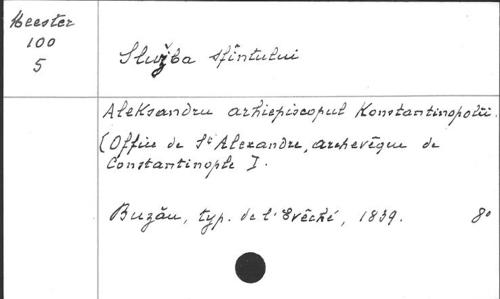 Meester
100
5
Služba sfîntului
Aleksandru arhiepiscopul Konstantinopolii.
[Office de St Alexandre, archevêque de
Constantinople].
Buzău, typ. de l'Evêché, 1839. 8°